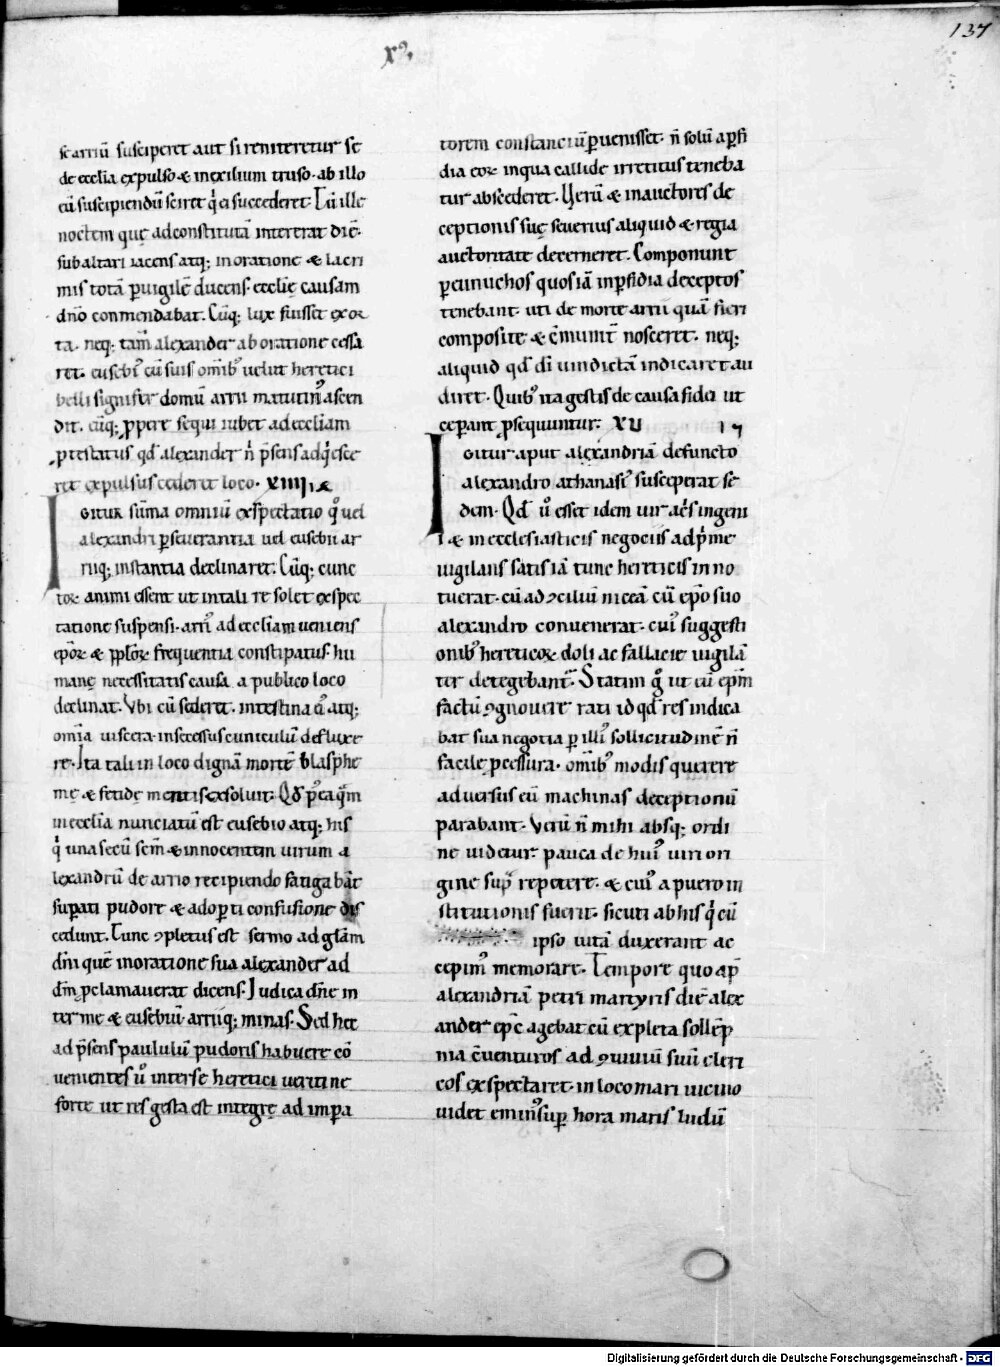 137
X
se arriū susciperet aut si reniteretur se
de ecclia expulso & inexilium truso. ab illo
cū suscipiendū sciret q̇ ei succederet. Cū ille
noctem quę adconstitutā intererat diē.
sub altari iacens atq; in oratione & lacri
mis totā ꝑuigilē ducens. ecclię causam
dn̄o conmendabat. Cūq; lux fuisset exor
ta. neq; tam̄ alexander ab oratione cessa
ret. eusebi᷒ cū suis omib᷒ uelut heretici
belli signifer domū arrii matutin᷒ ascen
dit. eūq; ꝓpere sequi iubet ad eccliam
ꝓtestatus qd̄ alexander n̄ p̄sens adq̇esce
ret expulsus cederet loco. XIIII
IGITUR sūma omniū exspectatio q̊ uel
alexandri ꝑseuerantia uel eusebii ar
riiq; instantia declinaret. Cūq; cunc
torꝝ animi essent ut in tali re solet exspec
tatione suspensi. arri᷒ ad eccliam ueniens
ep̄orꝝ & pp̄lorꝝ frequentia constipatus. hu
manę necessitatis causa a publico loco
declinat. Vbi cū sederet. intestina ei᷒ atq;
om̄ia uiscera in secessus cuniculū defluxe
re. Ita tali in loco dignā mortē blasphe
mę & fetidę mentis exsoluit. Qd̄ p̄eaq̄m
in ecclia nunciatū est eusebio atq; his
q̇ una secū sc̄m & innocentem uirum a
lexandrū de arrio recipiendo fatigabāt
suꝑati pudore & adoꝑti confusione dis
cedunt. Tunc ꝯpletus est sermo ad glām
dn̄i quē in oratione sua alexander ad
dn̄m ꝓclamauerat dicens. Iudica dn̄e in
ter me & eusebiū arriiq; minas. Sed hec
ad p̄sens paululū pudoris habuere eo
uenientes u᷒o inter se heretici ueriti ne
forte ut res gesta est integre ad impa
torem constanciū ꝑuenisset. n̄ solū a ꝑfi
dia eorꝝ in qua callide irretitus teneba
tur abscederet. Verū & in auctores de
ceptionis suę seuerius aliquid & regia
auctoritate decerneret. Componunt
ꝑ eunuchos quos iā in ꝑfidia deceptos
tenebant. uti de morte arrii quā fieri
composite & cm̄unit̄ nosceret. neq;
aliquid qd̄ di uindictā indicaret au
diret. Quib᷒ ita gestis de causa fidei ut
ceꝑant ꝓsequuntur. XV
IGITUR aput alexandriā defuncto
alexandro athanasi᷒ susceperat se
dem. Qd̄ u᷒o esset idem uir acs ingeni
i & in ecclesiasticis negociis adp̄me
uigilans satis iā tunc hereticis inno
tuerat. cū ad ꝯciliū niceā cū ep̄o suo
alexandro conuenerat. cui᷒ suggesti
onib᷒ hereticorꝝ doli ac fallacie uigilā
ter detegebant᷒. Statim g̊ ut eū ep̄m
factū ꝯgnouere rati id qd̄ res indica
bat sua negotia ꝑ illi᷒ sollicitudinē n̄
facile ꝓcessura. omib᷒ modis querere
aduersus eū machinas deceptionū
parabant. Verū n̄ mihi absq; ordi
ne uidetur pauca de hui᷒ uiri ori
gine sup̄ repetere. & cui᷒ a puero in
stitutionis fuerit. sicuti ab his q̇ cū
ipso uitā duxerant ac
cepim᷒ memorare. Tempore quo ap̄
alexandriā petri martyris diē alex
ander ep̄c agebat cū expleta sollēp
nia c̄uenturos ad ꝯuiuiū suū cleri
cos exspectaret. in loco mari uicino
uidet emin᷒ suꝑ hora maris ludū
Digitalisierung gefördert durch die Deutsche Forschungsgemeinschaft - DFG